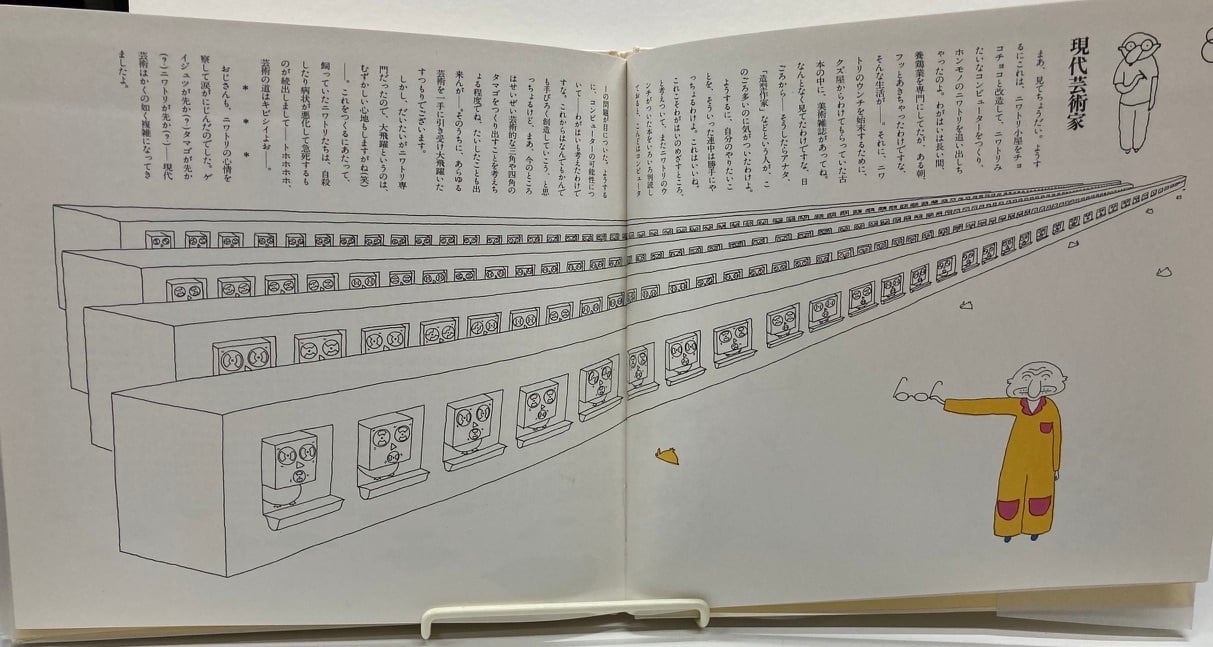 現代芸術家
まあ、見てちょうだい。ようす
るにこれは、ニワトリ小屋をチョ
コチョコと改造して、ニワトリみ
たいなコンピューターをつくり、
ホンモノのニワトリを追い出しち
ゃったのよ。わがはいは長い間、
養鶏業を専門にしてたが、ある朝、
フッとあきちゃったわけですな、
そんな生活が――。それに、ニワ
トリのウンチを始末するために、
クズ屋からわけてもらっていた古
本の中に、美術雑誌があってね。
なんとなく見てたわけですな、日
ごろから――そうしたらアナタ、
「造型作家」などという人が、こ
のごろ多いのに気がついたわけよ。
ようするに、自分のやりたいこ
とを、そういった連中は勝手にや
っちょるわけよ。これはいいね。
これこそわがはいのめざすところ。
と考えついて、またニワトリのウ
ンチがついた本をいろいろ判読し
ておると、こんどはコンピュータ
ーの問題が目についた。ようする
に、コンピューターの可能性につ
いて――わがはいも考えたわけで
すな。これからはなんでもかんで
も手びろく創造していこう、と思
っちょるけど、まあ、今のところ
はせいぜい芸術的な三角や四角の
タマゴをつくり出すことを考えち
ょる程度でね、たいしたことも出
来んが――。そのうちに、あらゆる
芸術を一手に引き受け大飛躍いた
すつもりでございます。
しかし、だいたいがニワトリ専
門だったので、大飛躍というのは、
むずかしい心地もしますがね(笑)
――。これをつくるにあたって、
飼っていたニワトリたちは、自殺
したり病状が悪化して急死するも
のが続出しまして――トホホホホ、
芸術の道はキビシイよお――。
* * *
おじさんも、ニワトリの心情を
察して涙がにじんだのでした。ゲ
イジュツが先か(?)タマゴが先か
(?)ニワトリが先か(?)――現代
芸術はかくの如く複雑になってき
ましたよ。